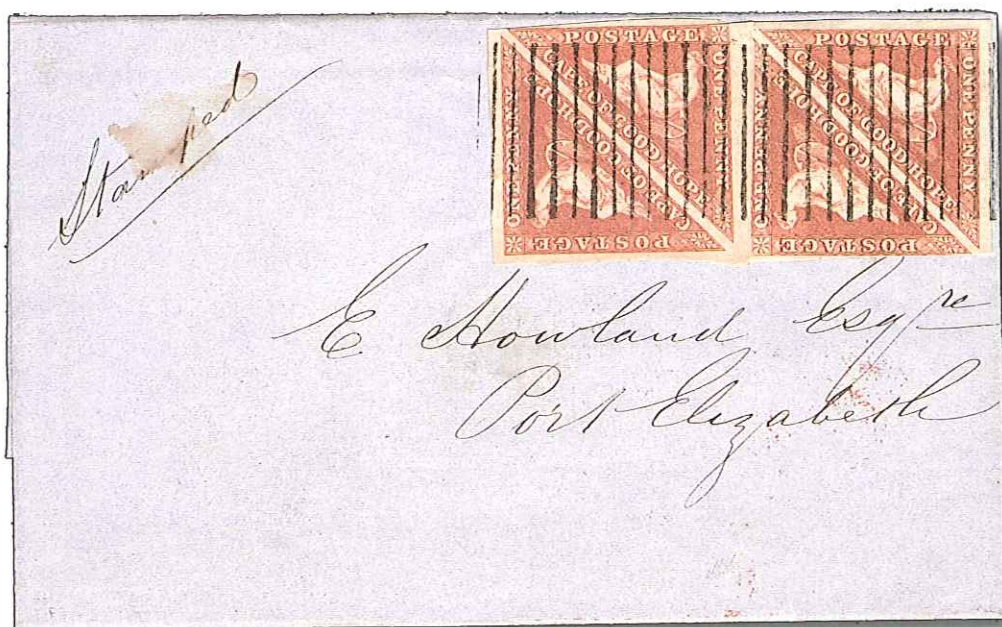 Stamped
POSTAGE
ONE PENNY
CAPE OF GOOD HOPE
CAPE OF GOOD HOPE
ONE PENNY
POSTAGE
POSTAGE
ONE PENNY
CAPE OF GOOD HOPE
CAPE OF GOOD HOPE
ONE PENNY
POSTAGE
E Howland Esqre
Port Elizabeth